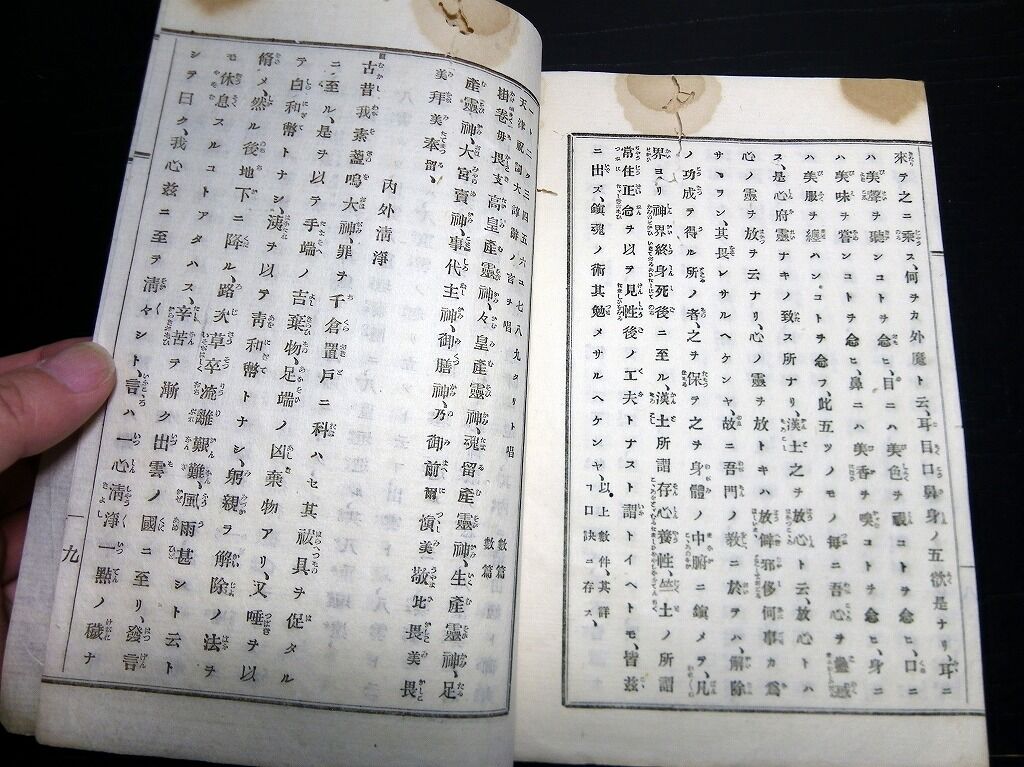 來テ之ニ乘ス、何ヲカ外魔ト云、耳目口鼻身ノ五欲是ナリ、耳ニ
ハ美聲ヲ聽ンコトヲ念ヒ、目ニハ美色ヲ視ンコトヲ念ヒ、口ニ
ハ美味ヲ甞ンコトヲ念ヒ、鼻ニハ美香ヲ嗅ンコトヲ念ヒ、身ニ
ハ美服ヲ纒ハンコトヲ念フ、此五ツノモノ毎ニ吾心ヲ蠱惑
ス、是心府靈ナキノ致ス所ナリ、漢土之ヲ放心ト云、放心トハ
心ノ靈ヲ放ヲ云ナリ、心ノ靈ヲ放トキハ放僻邪侈何事カ爲
サヽラン、其畏レサルヘケンヤ、故ニ吾門ノ敎ニ於テハ、
ノ功成テ得ル所ノ者、之ヲ保テ之ヲ身體ノ中府ニ鎭メテ、凡
界ヨリ神界終身死後ニ至ル、漢土所謂存心養性、竺土ノ所謂
常住正命ヲ以テ見性後ノ工夫トナスト謂トイヘトモ、皆玆
ニ出ズ、鎭魂ノ術其勉メサルヘケンヤ、以上數件、其詳ナルハ口訣ニ存ス、
一二三四五六七八九タリト唱 數篇
天津祝詞大祓ノ宮ヲ唱 數篇
掛卷毋畏支高皇產靈神、々皇產靈神、魂留產靈神、生產靈神、足
產靈神、大宮賣神、事代主神、御膳神、乃御前爾愼美敬比畏美畏
美拜美奉留、
內外淸淨
古昔我素盞嗚大神、罪ヲ千倉置戶ニ科ハセ其祓具ヲ促タル
ニ至ル、是ヲ以テ手端ノ吉棄物、足端ノ凶棄物アリ、又唾ヲ以
テ白和幣トナシ、洟ヲ以テ靑和幣トナシ、躬親ヲ解除ノ法ヲ
脩メ、然ル後地下ニ降ル、路次草卒流離艱難、風雨甚シト云ト
モ休息スルコトアタハス、辛苦ヲ漸ク出雲ノ國ニ至リ、發言
シテ曰ク、我心玆ニ至テ淸々シト、言ハ一心淸淨一點ノ穢ナ
九